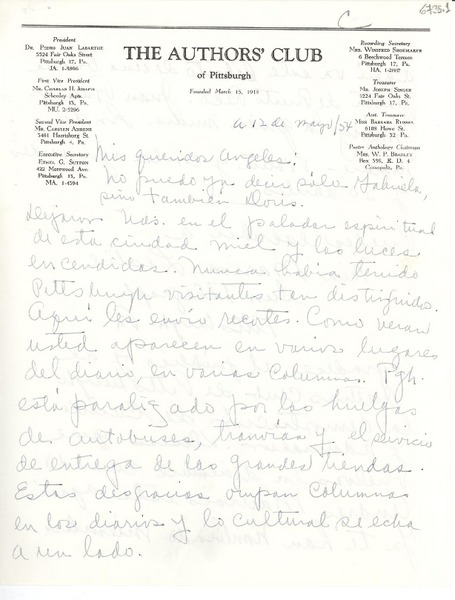 6735.1
C
THE AUTHORS' CLUB
of Pittsburgh
Founded March 15, 1914
President
DR. PEDRO JUAN LABARTHE
5524 Fair Oaks Street
Pittsburgh 17, Pa.
JA. 1-8806
First Vice President
MR. CHARLES H.
Schenley Apts.
Pittsburgh 13, Pa.
MU. 2-5296
Second Vice President
MR. CARSTEN AHRENS
5461 Harrisburg St.
Pittsburgh 4, Pa.
Executive Secretary
ETHEL G. SUTTON
422 Merrivood Ave.
Pittsburgh 13, Pa.
MA. 1-4594
Recording Secretary
MRS. WINIFRED SHOEMAKER
6 Beechwood Terrace
Pittsburgh 17, Pa.
Treasurer
MR. JOSEPH SINGER
5524 Fair Oaks St.
Pittsburgh 17, Pa.
Asst. Treasurer
MISS BARBARA
6188 Howe St.
Pittsburgh 32 Pa.
Poetry Anthology Chairman
MRS. W. P. BRADLEY
Box 556, R. D. 4
Coraopolis, Pa.
a 12 de mayo/54
Mis queridos Angeles:
No puedo ya decir sólo Gabriela,
sino también Doris.
Dejaron Uds. en el paladar espiritual
de esta ciudad miel y las luces
encendidas. Nunca había tenido
Pittsburgh visitantes tan distinguidos.
Aquí les envío recortes. Como verán
usted aparecen en varios lugares
del diario, en varias columnas. Pgh.
está paralizado por las huelgas
de autobuses, tranvías y el servicio
de entrega de las grandes tiendas.
Estas desgracias ocupan columnas
en los diarios y lo cultural se echa
a un lado.